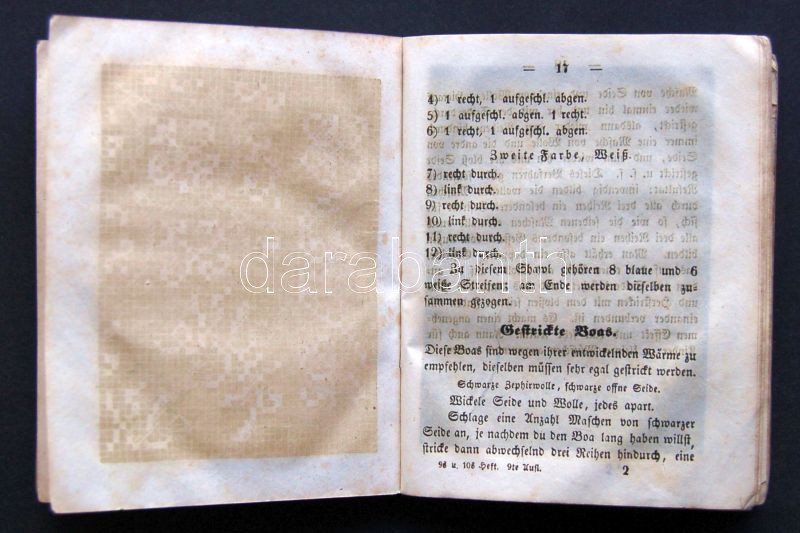 = 17 =
4) 1 recht, 1 aufgeschl. abgen.
5) 1 aufgeschl. abgen. 1 recht.
6) 1 recht, 1 aufgeschl. abgen.
Zweite Farbe, Weiß.
7) recht durch.
8) link durch.
9) recht durch.
10) link durch.
11) recht durch.
12) link durch.
Zu diesem Shawl gehören 8 blaue und 6
weiße Streifen; am Ende werden dieselben zu-
sammen gezogen.
darabanth
Gestrickte Boas.
Diese Boas sind wegen ihrer entwickelnden Wärme zu
empfehlen, dieselben müssen sehr egal gestrickt werden.
Schwarze Zephierwolle, schwarze offne Seide.
Wickele Seide und Wolle, jedes apart.
Schlage eine Anzahl Maschen von schwarzer
Seide an, je nachdem du den Boa lang haben willst,
stricke dann abwechselnd drei Reihen hindurch, eine
9s u. 10s Heft. 9te Aufl. 2